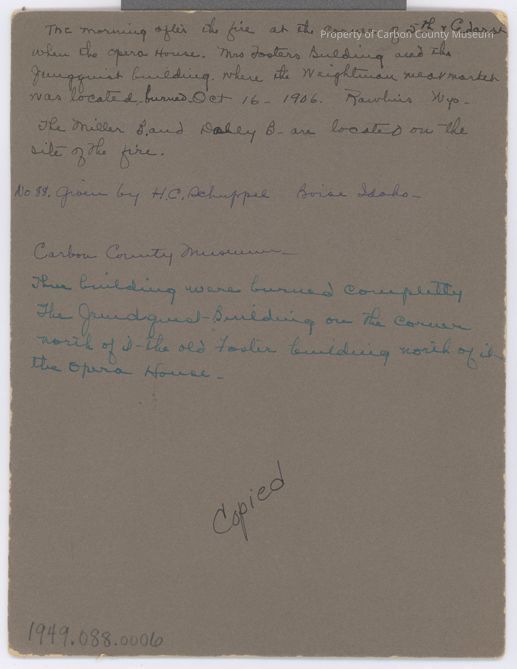 The morning after the fire at the corner of 5th & Cedar st
Property of Carbon County Museum
when the opera House. Mrs Fosters Building and the
Jundquist building. where the Weightman meat market
was located, burned. Oct 16 - 1906. Rawlins, Wyo -
The Miller B, and Dailey B - are located on the
site of the fire.
No 88. Given by H.C. Schuppel Boise Idaho -
Carbon County Museum -
Three building were burned completly
The Jundquist Building on the corner
north of it - the old Foster building north of it
the Opera House -
Copied
1949.088.0006